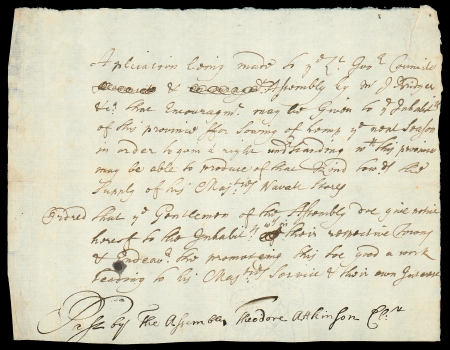 Aplication being made to ye Lt Govr Councill
& Assembly by Mr J. Bridger
&c: that Encouragmt may be Given to ye Inhabits
of this province for Sowing of hemp ye next Season
in order to gain a right undrstanding wt this province
may be able to produce of that Kind towds the
Supply of his Majtes Navall Stores
Ordred that ye Gentlemen of the Assembly doe give notice
hereof to the Inhabits of their respective Towns
& Endeavr the promoteing this soe good a work
tending to his Majtes Service & their own Interese
Past by the Assembly Theodore Atkinson Clr